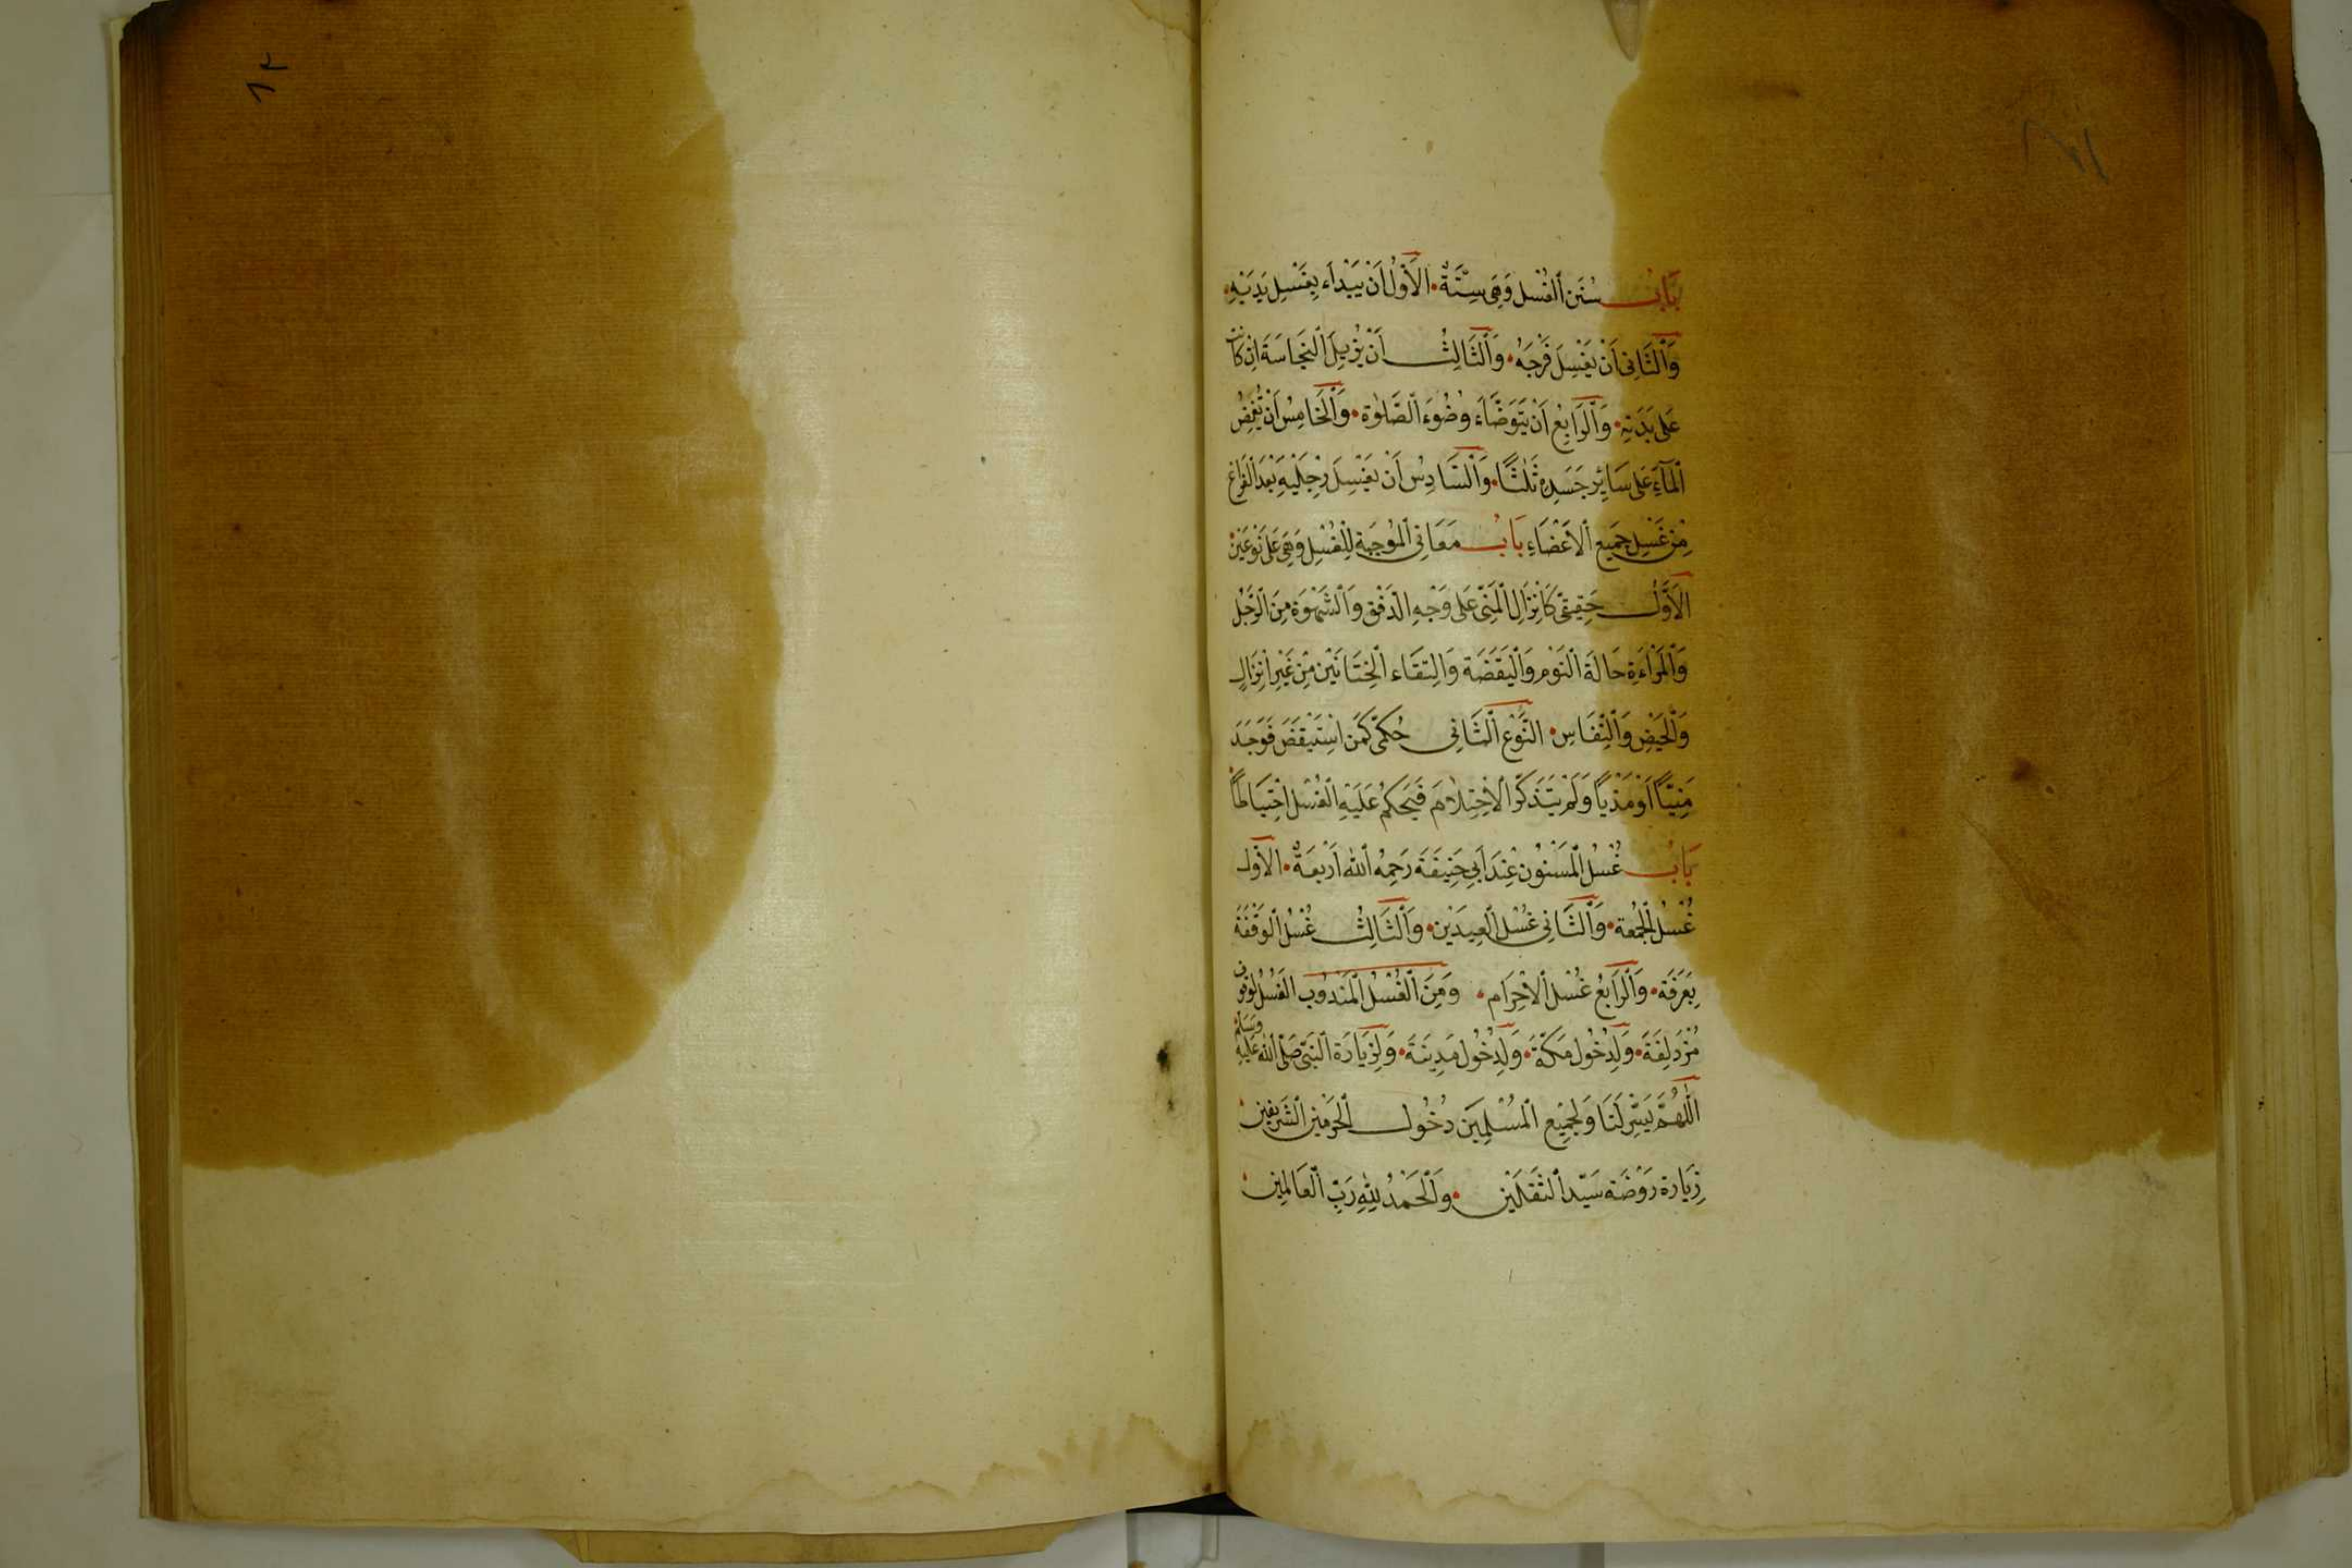 بَابُ سُنَنِ ٱلْغُسْلِ وَهِيَ سِتَّةٌ ٠ الْأَوَّلُ أَنْ يَبْدَاءَ بِغَسْلِ يَدَيْهِ ٠
وَٱلثَّانِى أَنْ يَغْسِلَ فَرْجَهُ ٠ وَٱلثَّالِثُ أَنْ يُزِيلَ ٱلنَّجَاسَةَ اِنْ كَانَتْ
عَلَى بَدَنِهِ ٠ وَٱلرَّابِعُ أَنْ يَتَوَضَّاَءَ وُضُوءَ ٱلصَّلٰوةِ ٠ وَٱلْخَامِسُ أَنْ يُفِيضَ
ٱلْمَآءَ عَلَى سَائِرِ جَسَدِهِ ثَلٰثًا ٠ وَٱلسَّادِسُ أَنْ يَغْسِلَ رِجْلَيْهِ بَعْدَ ٱلْفَرَاغِ
مِنْ غَسْلِ جَمِيعِ ٱلْأَعْضَاءِ بَابُ مَعَانِى ٱلْمُوجِبَةِ لِلْغُسْلِ وَهِيَ عَلَى نَوْعَيْنِ ٠
الْأَوَّلُ حَقِيقِىٌّ كَاِنْزَالِ ٱلْمَنِىِّ عَلَى وَجْهِ الدَّفْقِ وَٱلشَّهْوَةِ مِنَ ٱلرَّجُلِ
وَٱلْمَرْاءَةِ حَالَةَ ٱلنَّوْمِ وَٱلْيَقَضَةِ وَالِتقَاءِ ٱلْخِتَانَيْنِ مِنْ غَيْرِ اِنْزَالٍ
وَٱلْحَيْضِ وَٱلنِّفَاسِ ٠ النَّوْعُ ٱلثَّانِى حُكْمِىٌّ كَمَنِ اسْتَيْقَضَ فَوَجَدَ
مَنِيًّا اَوْ مَذْيًا وَلَمْ يَتَذَكَّرِ الْاِحْتِلَامَ فَيُحْكَمُ عَلَيْهِ ٱلْغُسْلُ احْتِيَاطًا ٠
بَابُ غُسْلِ ٱلْمَسْنُونِ عِنْدَ اَبِى حَنِيفَةَ رَحِمَهُ ٱللّٰهُ اَرْبَعَةٌ ٠ الْأَوَّلُ
غُسْلُ ٱلْجُمُعَةِ ٠ وَٱلثَّانِى غُسْلُ ٱلْعِيدَيْنِ ٠ وَٱلثَّالِثُ غُسْلُ ٱلْوَقْفَةِ
بِعَرَفَةَ ٠ وَٱلرَّابِعُ غُسْلُ ٱلْاِحْرَامِ ٠ وَمِنَ ٱلْغُسْلِ ٱلْمَنْدُوبِ الْغُسْلُ لِوُقُوفِ
مُزْدَلِفَةَ ٠ وَلِدُخُولِ مَكَّةَ ٠ وَلِدُخُولِ مَدِينَةَ ٠ وَلِزِيَارَةِ ٱلنَّبِىِّ صَلَّى ٱللّٰهُ عَلَيْهِ وَسَلَّمَ
اَللّٰهُمَّ يَسِّرْ لَنَا وَلِجَمِيعِ ٱلْمُسْلِمِينَ دُخُولَ ٱلْحَرَمَيْنِ ٱلشَّرِيفَيْنِ ٠
زِيَارَةِ رَوْضَةِ سَيِّدِ ٱلثَّقَلَيْنِ ٠ وَٱلْحَمْدُ لِلّٰهِ رَبِّ ٱلْعَالَمِينَ ٠